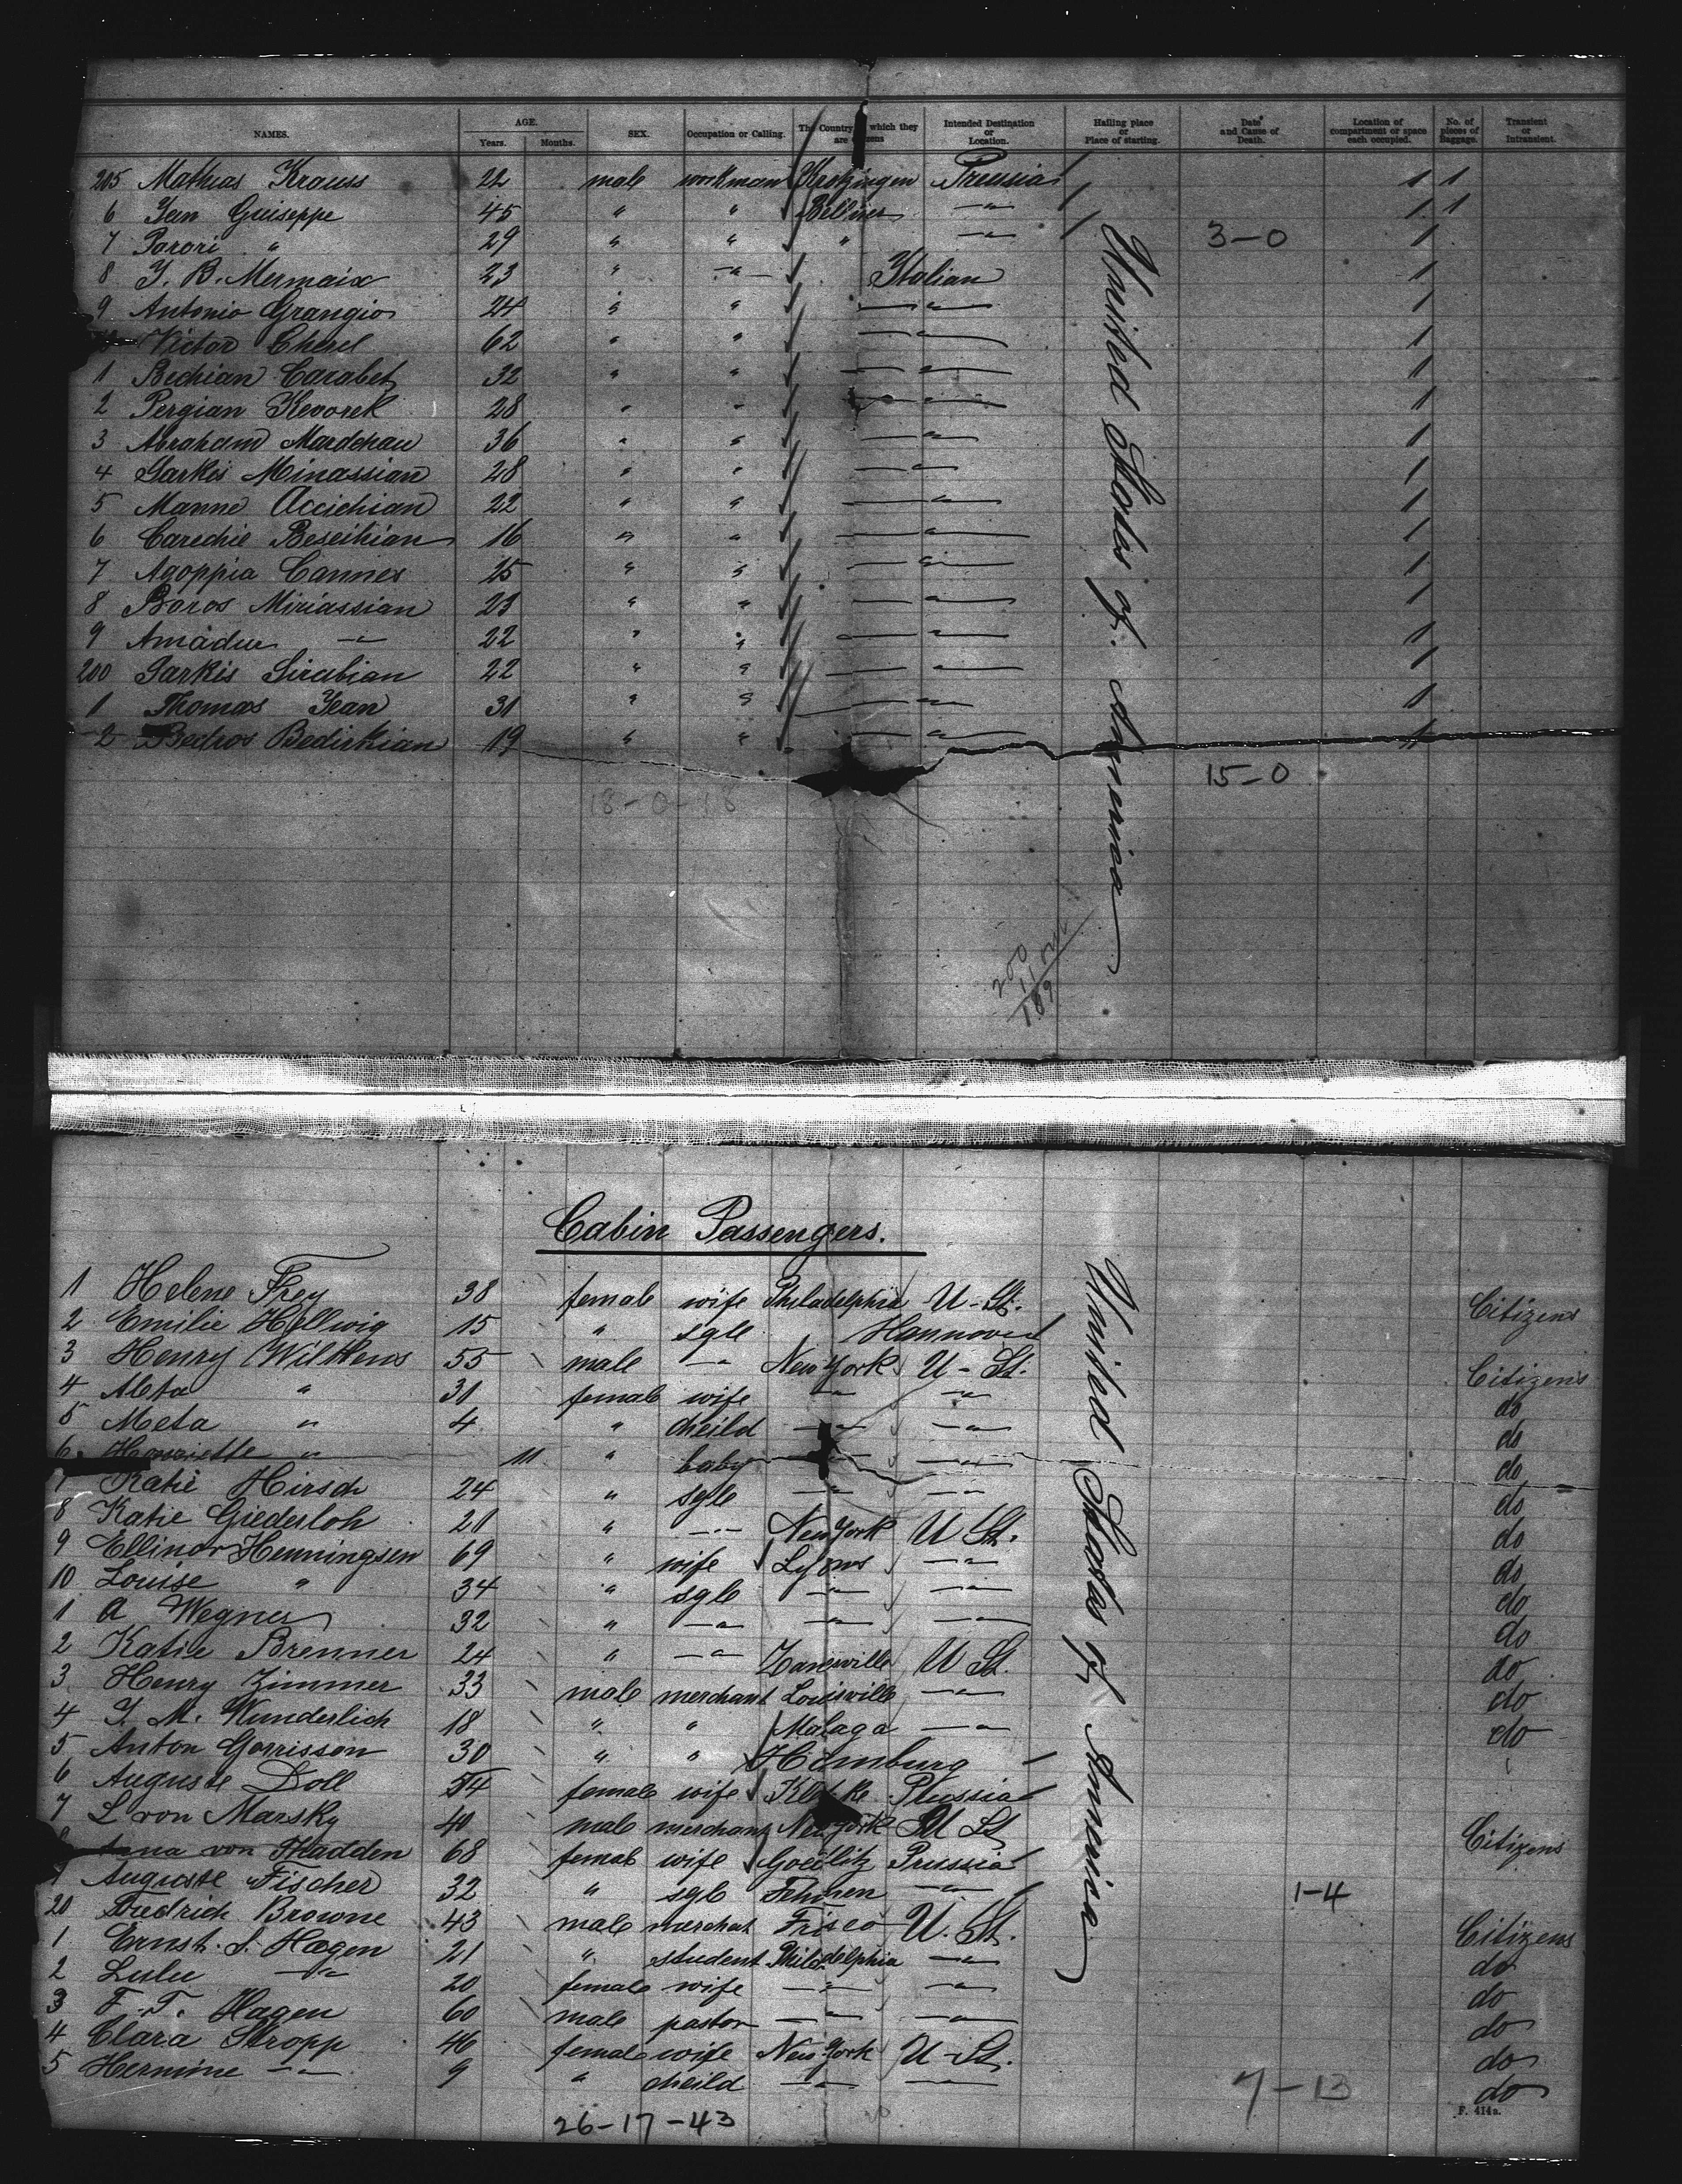 NAMES. AGE. Years. Months. SEX. Occupation or Calling. The Country which they are Intended Destination or Location. Hailing place or Place of starting. Date and Cause of Death. Location of compartment or space each occupied. No. of pieces of Baggage. Transient or Intransient.
205 Mathias Krauss 22 male workman Kretzingen Preussia 1 1
6 Jean Guiseppe 45 " " " 1 1
7 " 29 " " " " 3-0 1
8 J. B. Mermaix 23 " " Italian 1
9 Antonio Grangios 24 " " " 1
Victor Cherel 62 " " " 1
1 Bechian Carabet 32 " " " 1
2 Pergian Kevorek 28 " " " 1
3 Abraham Mardekau 36 " " " 1
4 Sarkis Minassian 28 " " " 1
5 Manne Accichian 22 " " " 1
6 Carechie Beseikian 16 " " " 1
7 Agoppia Cannes 25 " " " 1
8 Boros Miriassian 23 " " " 1
9 Amadeu " 22 " " " 1
200 Sarkis Sirabian 22 " " " 1
1 Thomas Jean 31 " " " 1
2 Bedros Bedirkian 19 " " " 1
United States of America
15-0
18-0-18
200
11
189
Cabin Passengers.
1 Helene Frey 38 female wife Philadelphia U-St. Citizens
2 Emilie Hellwig 15 " sgle Hannover
3 Henry Wilkens 55 male " New York U-St. Citizens
4 Aleta " 31 female wife " " do
5 Meta " 4 " cheild " " do
6 Henriette " 11 " baby " " do
7 Katie Hirsch 24 " sgle " " do
8 Katie Giederloh 21 " " New York U St. do
9 Ellinor Henningsen 69 " wife Lyons " do
10 Louise " 34 " sgle " " do
1 A Wegner 32 " " " " do
2 Katie Brenner 24 " " Zanesville U St. do
3 Henry Zimmer 33 male merchant Louisville " do
4 J. M. Wunderlich 18 " " Malaga " do
5 Anton Gorrisson 30 " " Hamburg
6 Auguste Doll 54 female wife Prussia
7 L von Marsky 40 male merchant New York U St Citizens
von Thadden 68 female wife Goerlitz Prussia
9 Auguste Fischer 32 " sgle " 1-4
20 Friedrich Browne 43 male merchat Frisco U. St. Citizens
1 Ernst. S. Hagen 21 " student Philadelphia " do
2 " 20 female wife " " do
3 F. T. Hagen 60 male pastor " " do
4 Clara Stropp 46 female wife New York U-St. do
5 Hermine " 9 " cheild " " do
United States of America
7-13
26-17-43
F. 414a.